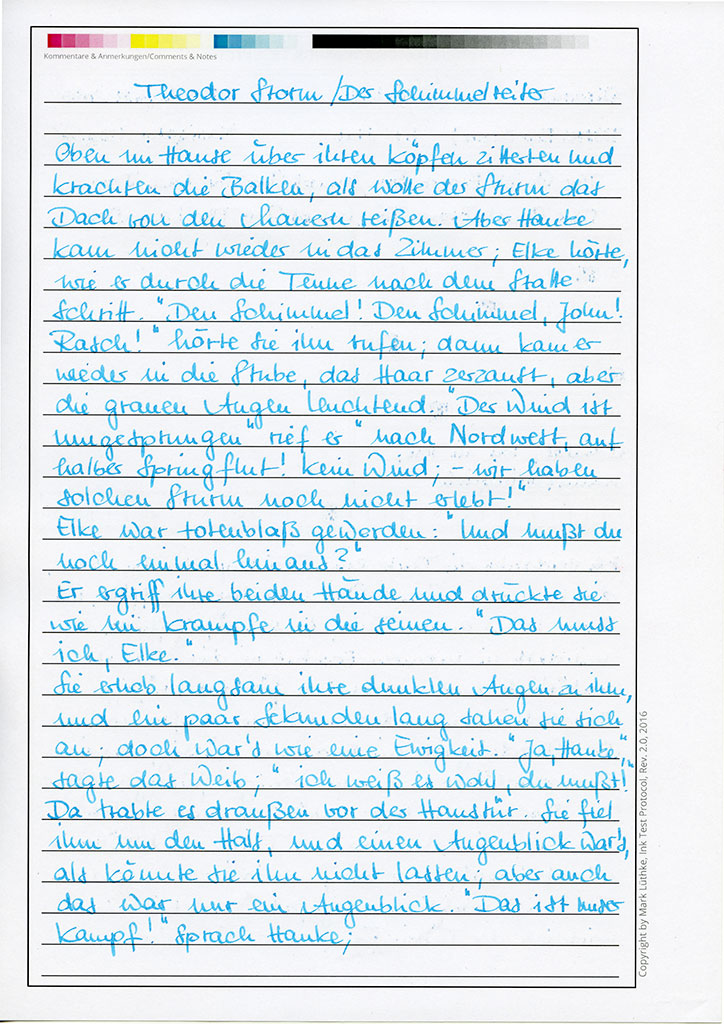 Kommentare & Anmerkungen/Comments & Notes
Theodor Storm / Der Schimmelreiter
Oben im Hause über ihren Köpfen zitterten und
krachten die Balken, als wolle der Sturm das
Dach von den Mauern reißen. Aber Hauke
kam nicht wieder in das Zimmer; Elke hörte,
wie er durch die Tenne nach dem Stalle
schritt. "Den Schimmel! Den Schimmel, John!
Rasch!" hörte sie ihn rufen; dann kam er
wieder in die Stube, das Haar zerzaust, aber
die grauen Augen leuchtend. "Der Wind ist
umgesprungen" rief er "nach Nordwest, auf
halber Springflut! Kein Wind; – wir haben
solchen Sturm noch nicht erlebt!"
Elke war totenblaß geworden: "Und mußt du
noch einmal hinaus?"
Er ergriff ihre beiden Hände und drückte sie
wie im Krampfe in die seinen. "Das muss
ich, Elke."
Sie erhob langsam ihre dunklen Augen zu ihm,
und ein paar Sekunden lang sahen sie sich
an; doch war's wie eine Ewigkeit. "Ja, Hauke",
sagte das Weib; "ich weiß es wohl, du mußt!"
Da trabte es draußen vor der Haustür. Sie fiel
ihm um den Hals, und einen Augenblick war's,
als könnte sie ihn nicht lassen; aber auch
das war nur ein Augenblick. "Das ist unser
Kampf!" sprach Hauke;
Copyright by Mark Lüthke, Ink Test Protocol, Rev. 2.0, 2016